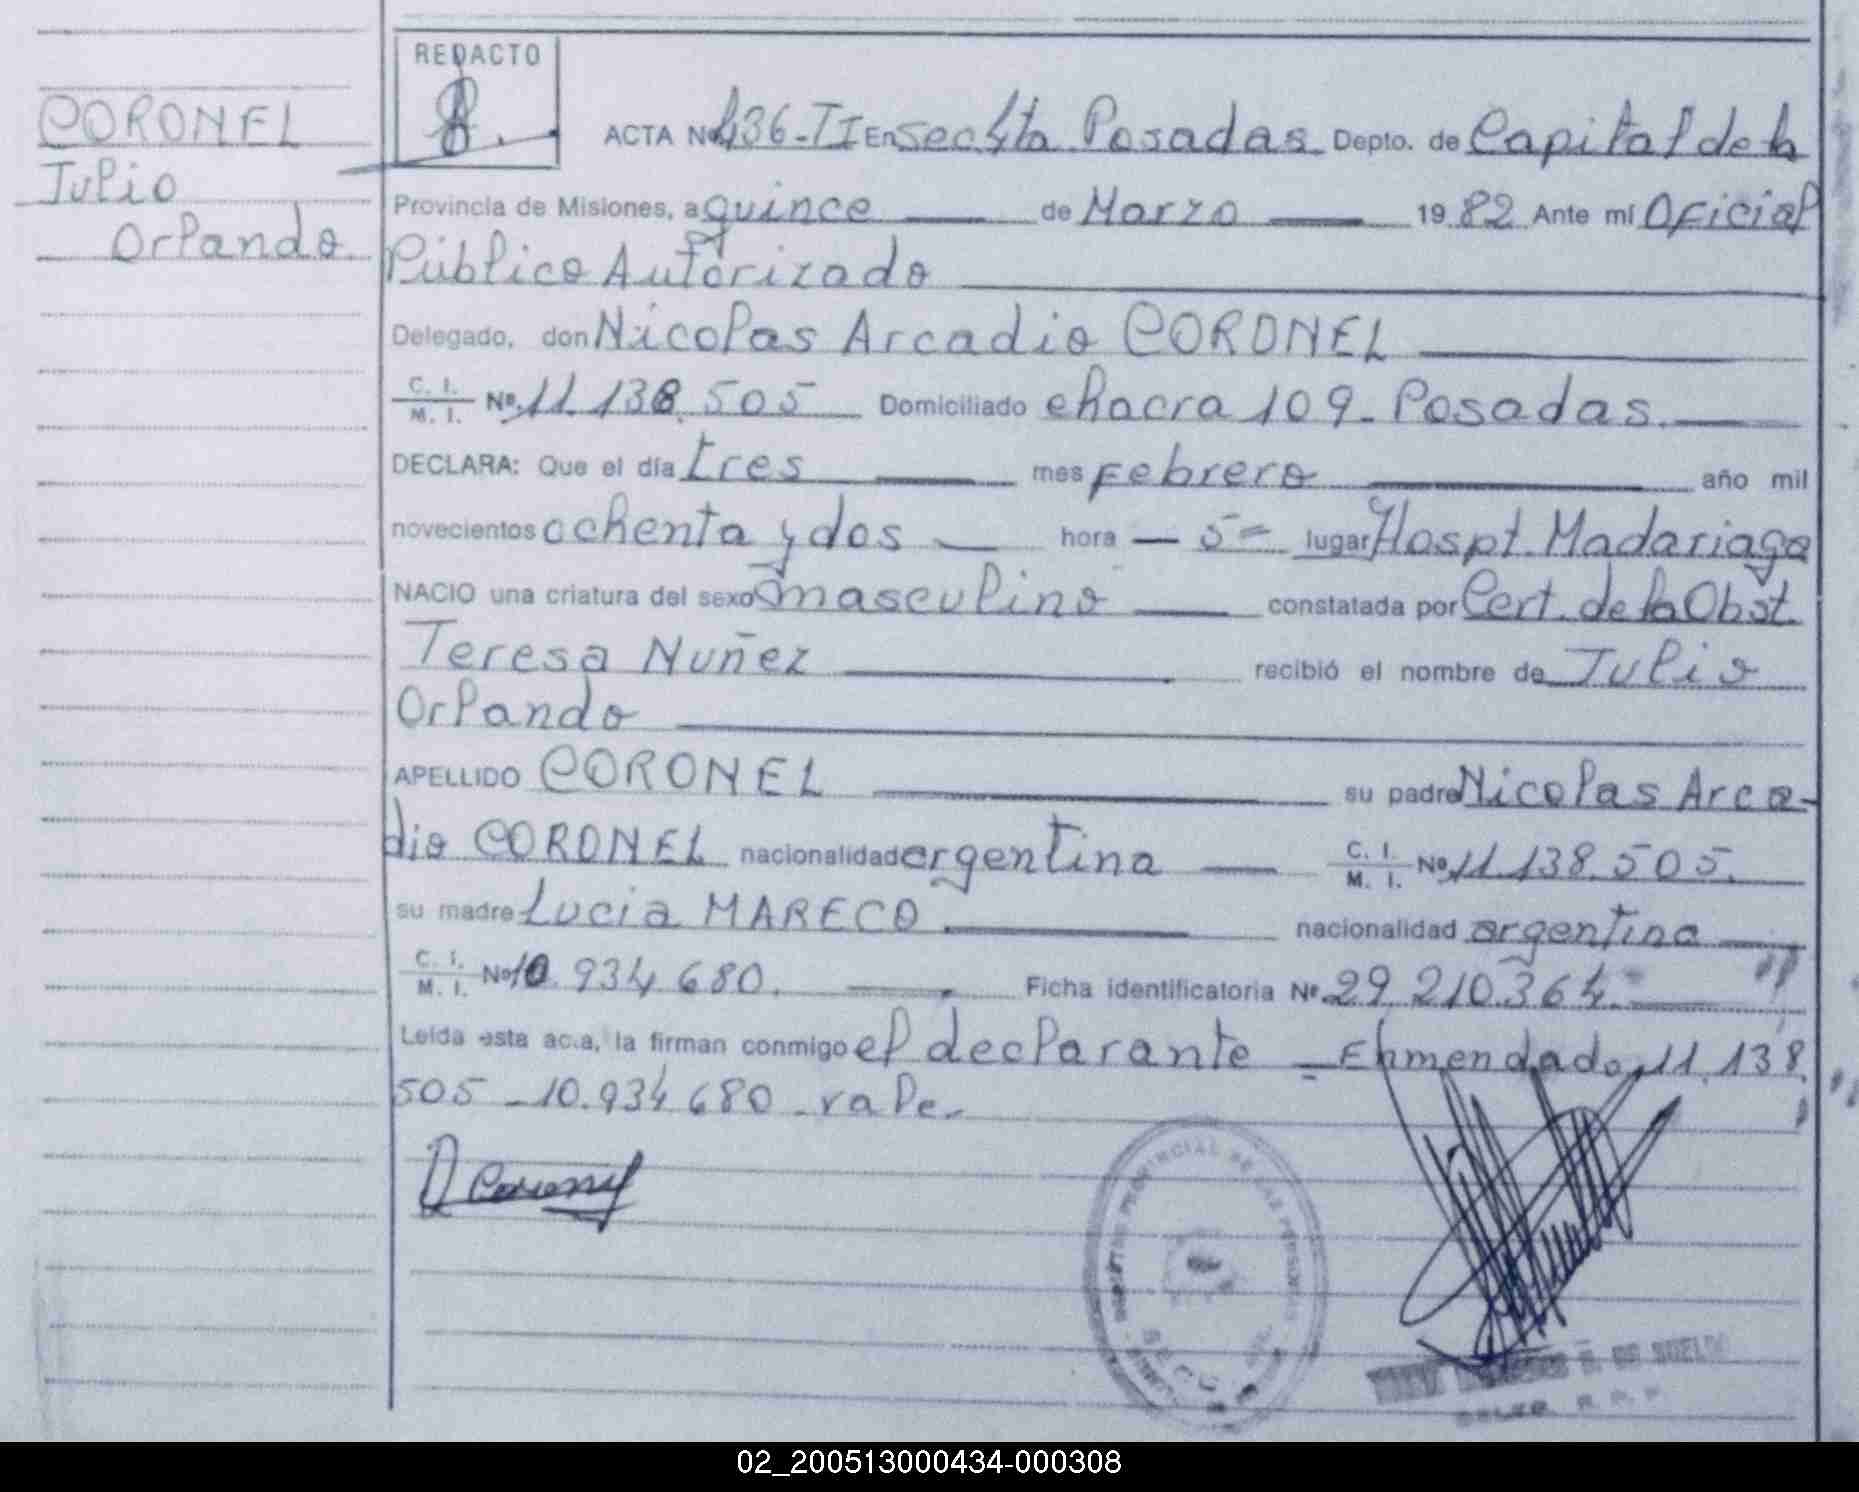 CORONEL
Julio
Orlando
REDACTO
ACTA Nº 436-II En Sec. 4ta Posadas Depto. de Capital de la
Provincia de Misiones, a quince de Marzo 1982 Ante mí Oficial
Público Autorizado
Delegado, don Nicolas Arcadio CORONEL
C. I. M. I. Nº 11.138.505 Domiciliado chacra 109 - Posadas.
DECLARA: Que el día tres mes Febrero año mil
novecientos ochenta y dos hora — 5 = lugar Hospt. Madariaga
NACIO una criatura del sexo masculino constatada por Cert. de la Obst.
Teresa Nuñez recibió el nombre de Julio
Orlando
APELLIDO CORONEL su padre Nicolas Arca-
dio CORONEL nacionalidad argentina C. I. M. I. Nº 11.138.505.
su madre Lucia MARECO nacionalidad argentina
C. I. M. I. Nº 10.934.680. Ficha identificatoria Nº 29.210.364.
Leída esta acta, la firman conmigo el declarante - Enmendado 11.138.
505 - 10.934.680 - vale.-
PROVINCIAL DE LAS PERSONAS
02_200513000434-000308